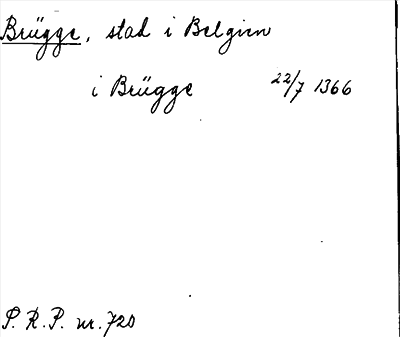 Brügge, stad i Belgien
i Brügge 22/7 1366
P. R. P. nr. 720